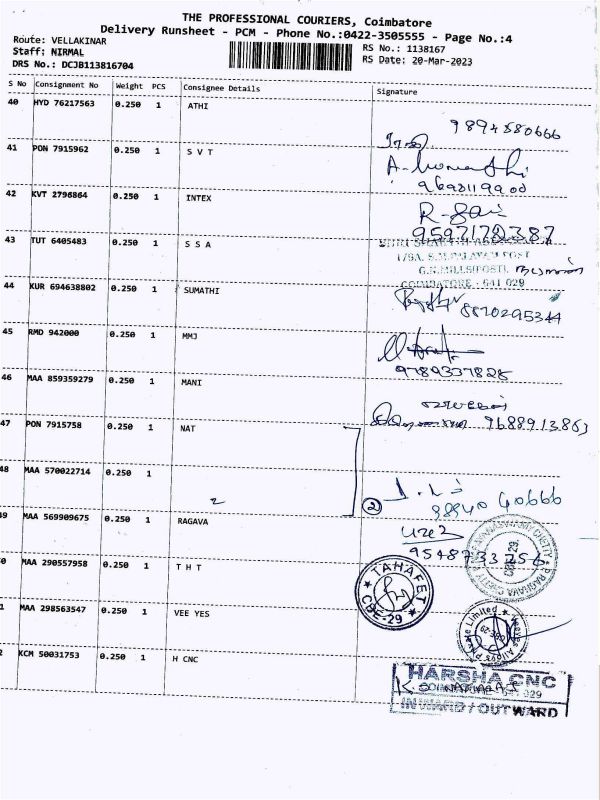 THE PROFESSIONAL COURIERS, Coimbatore
Delivery Runsheet - PCM - Phone No.:0422-3505555 - Page No.:4
Route: VELLAKINAR
Staff: NIRMAL
DRS No.: DCJB113816704
RS No.: 1138167
RS Date: 20-Mar-2023
S No Consignment No Weight PCS Consignee Details Signature
40 HYD 76217563 0.250 1 ATHI
9894580666
41 PON 7915962 0.250 1 S V T
42 KVT 2796864 0.250 1 INTEX
R-
9597172387
43 TUT 6405483 0.250 1 S S A
1/9A, S.M.PALAYAM POST
G.N.MILLS(POST),
COIMBATORE - 641 029
44 KUR 694638802 0.250 1 SUMATHI
8870295344
45 RMD 942000 0.250 1 MMJ
9789337828
46 MAA 859359279 0.250 1 MANI
9688913863
47 PON 7915758 0.250 1 NAT
48 MAA 570022714 0.250 1
2
98940 40666
49 MAA 569909675 0.250 1 RAGAVA
9548733256
CBE-29.
0 MAA 290557958 0.250 1 T H T
TAHAFET
CBE-29
1 MAA 298563547 0.250 1 VEE YES
Veeyes Alloys Private Limited
CBE-29
2 KCM 50031753 0.250 1 H CNC
HARSHA CNC
641 029
INWARD / OUTWARD